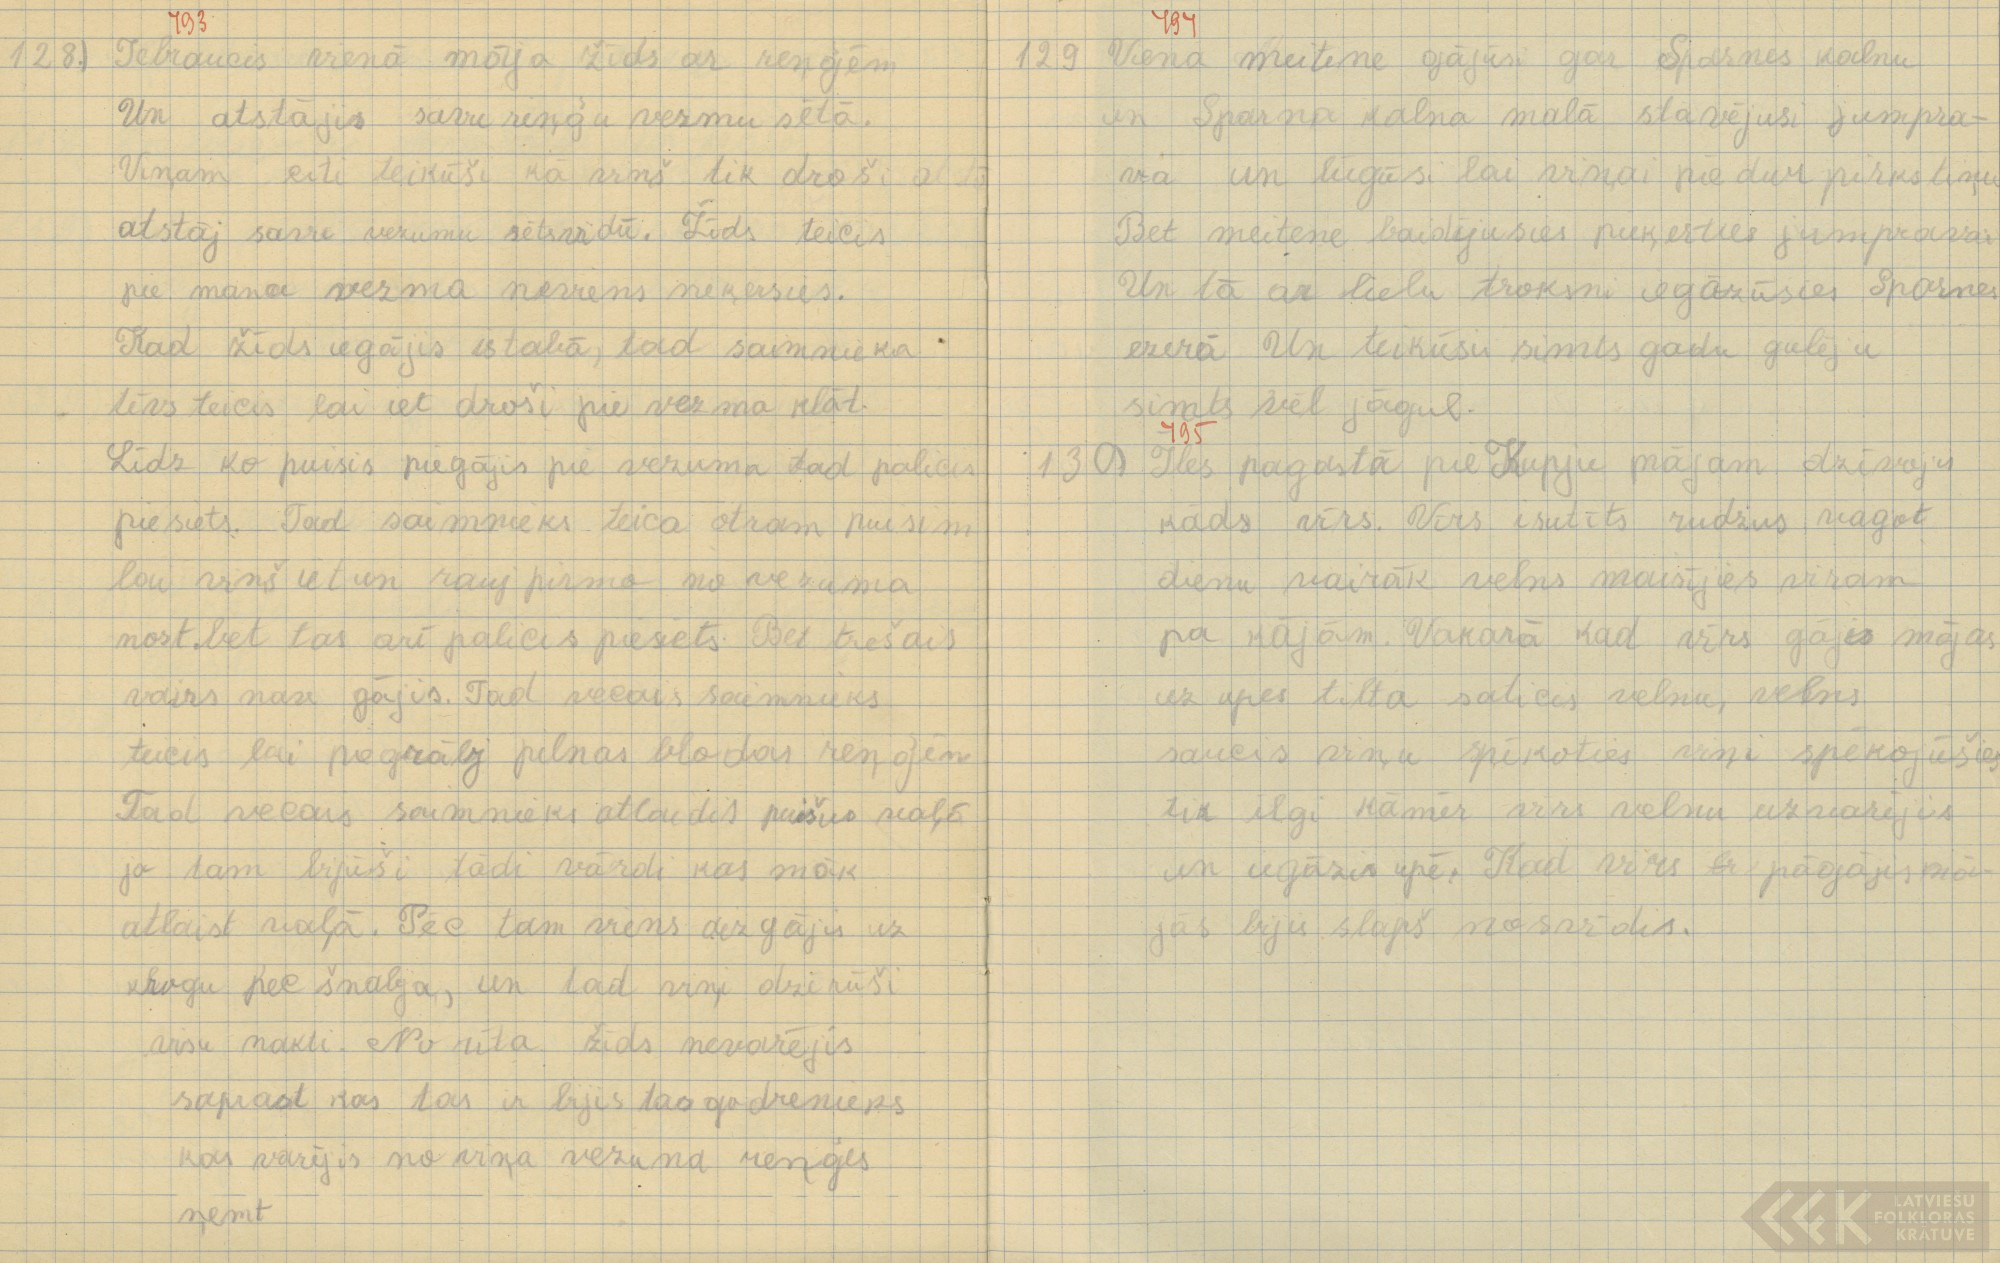 793
128.) Iebraucis vienā mōja žīds ar reņģēm
Un atstājis savu reņģu vezmu sētā.
Viņam citi teikūši kā viņš tik droši
atstāj savu vezumu sētsvidū. Žīds teicis
pie mana vezma neviens neķersies.
Kad žīds iegājis istabā, tad saimnieka
tēvs teicis lai iet droši pie vezma klāt.
Līdz ko puisis piegājis pie vezuma tad palicis
piesiets. Tad saimnieks teica otram puisim
lai viņš iet un rauj pirmo no vezuma
nost. bet tas arī palicis piesiets. Bet trešais
vairs nau gājis. Tad vecais saimnieks
teicis lai piegrābj pilnas blodas reņģēm
Tad vecais saimnieks atlaidis puišus vaļā
jo tam bijūši tādi vārdi kas māk
atlaist vaļā. Pēc tam viens aizgājis uz
krogu pēc šnabja, un tad viņi dzērūši
visu nakti. No rīta žīds nevarējis
saprast kas tas ir bijis tas gadrenieks
kas varējis no viņa vezuma reņģes
ņemt
794
129 Viena meitene gājūsi gar Spārnes kalnu
un Spārna kalna malā stavējusi jumpra-
va un lūgūsi lai viņai piedur pirkstiņu
Bet meitene baidījusies pieķerties jumpravai
Un tā ar lielu troksni iegāzūsies Spārnes
ezerā Un teikūsi simts gadu gulēju
simts vēl jāguļ.
795
130) Īles pagastā pie Kupju mājam dzīvoju
kāds vīrs. Vīrs isutīts rudzus vagot
dienu vairāk velns maisījies viram
pa kājām. Vakarā kad vīrs gājis mājas
uz upes tilta saticis velnu, velns
saucis viņu spēkoties viņi spēkojūšies
tik ilgi kāmēr vīrs velnu uzvarējis
un iegāzis upē. Kad vīrs pāgājis mā-
jās bijis slapš nosvīdis.
LATVIEŠU
FOLKLORAS
KRĀTUVE